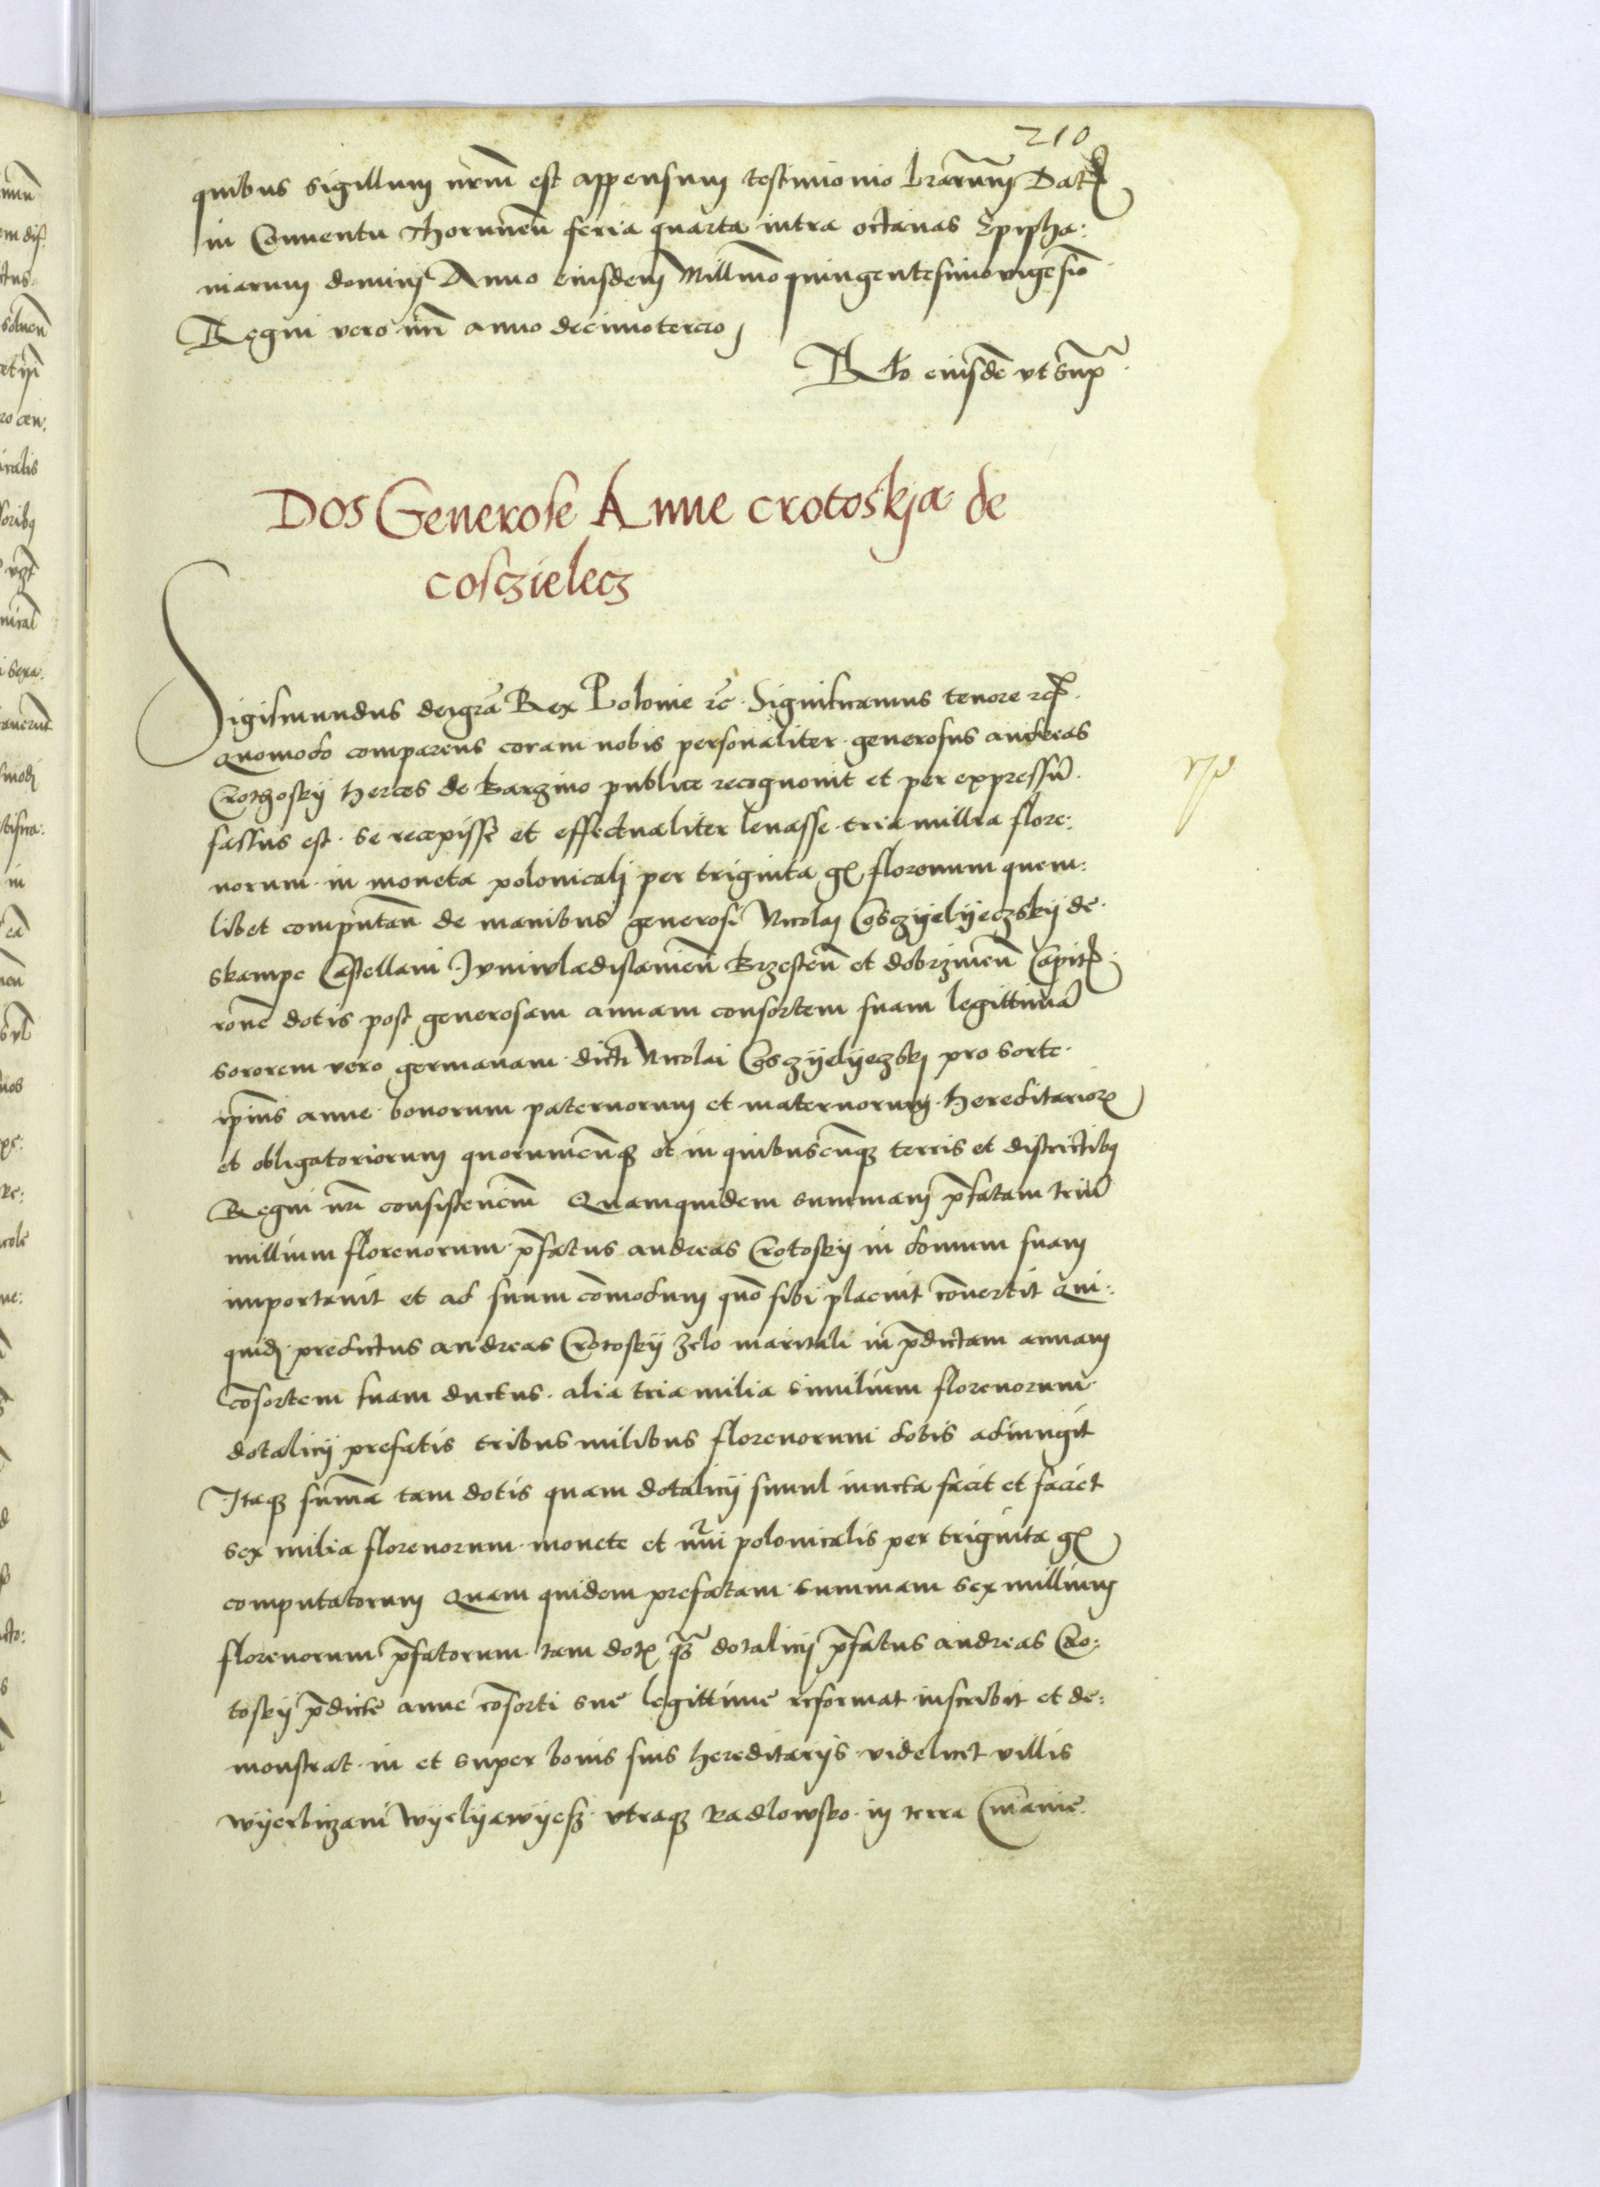 210
quibus sigillum nrm̄ est appensum testimonio lrarum Dat̄
in Conuentu Thorunen̄ feria quarta intra octauas Epipha:
niarum dominj Anno eiusdem Millmo quingentesimovigesīo
Regni vero nr̄i anno decimotercio
Rlo eiusdē vt supra
Dos Generose Anne crotoskja de
cosczielecz
Sigismundus dei gr̄a Rex Polonie rc̄. Significamus tenore rc̄.
Quomodo comparens coram nobis personaliter generosus andreas
Crothoskÿ heres de Barzino publice recognouit et per expressū.
fassus est. se recepisse et effectualiter leuasse tria millia flore:
norum in moneta polonicalj per triginta gr̄ florenum quem:
libet computan̄ de manibus generosi Nicolaj Cosczÿelÿeczskÿ de
skampe Castellani Juniuladislauien̄ Brzesten̄ et dobrzinen̄ Capit̄
rōne dotis post generosam annam consortem suam legittimā
sororem vero germanam dicti Nicolai Cosczÿelÿeczskj pro sorte
ip̄ius anne bonorum paternorum et maternorum hereditariorū
et obligatoriorum quorumcunq3 et in quibuscunq3 terris et districtibus
Regni nr̄i consistencium Quamquidem summam p̄fatam triū
millium florenorum p̄fatus andreas Crotoskÿ in domum suam
importauit et ad suum cōmodum quō sibi placuit cōuertit Qui:
quidē predictus andreas Crotoskÿ zelo maritali in p̄dictam annam
cōsortem suam ductus. alia tria milia similium florenorum
dotalicij prefatis tribus milibus florenorum dotis adiungit
Itaq3 sūma tam dotis quam dotalicij simul iuncta facit et faciet
sex milia florenorum monete et nūi polonicalis per triginta gr̄
computatorum Quam quidem prefatam summam sex millium
florenorum p̄fatorum tam dot̄ q̄3 dotalicij p̄fatus andreas Cro:
toskÿ p̄dicte anne cōsorti sue legittime reformat inscribit et de:
monstrat in et super bonis suis hereditarijs videlicet villis
wÿerbiczani wÿelÿawÿesz vtraq3 Radlowsko in terra Cuiauie